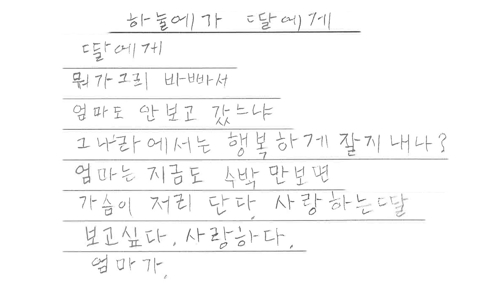 하늘에가 딸에게
딸에게
뭐가그리 바빠서
엄마도 안보고 갔느냐
그나라에서는 행복하게 잘지내나?
엄마는 지금도 수박 만보면
가슴이 저리 단다. 사랑하는딸
보고싶다. 사랑하다.
엄마가.